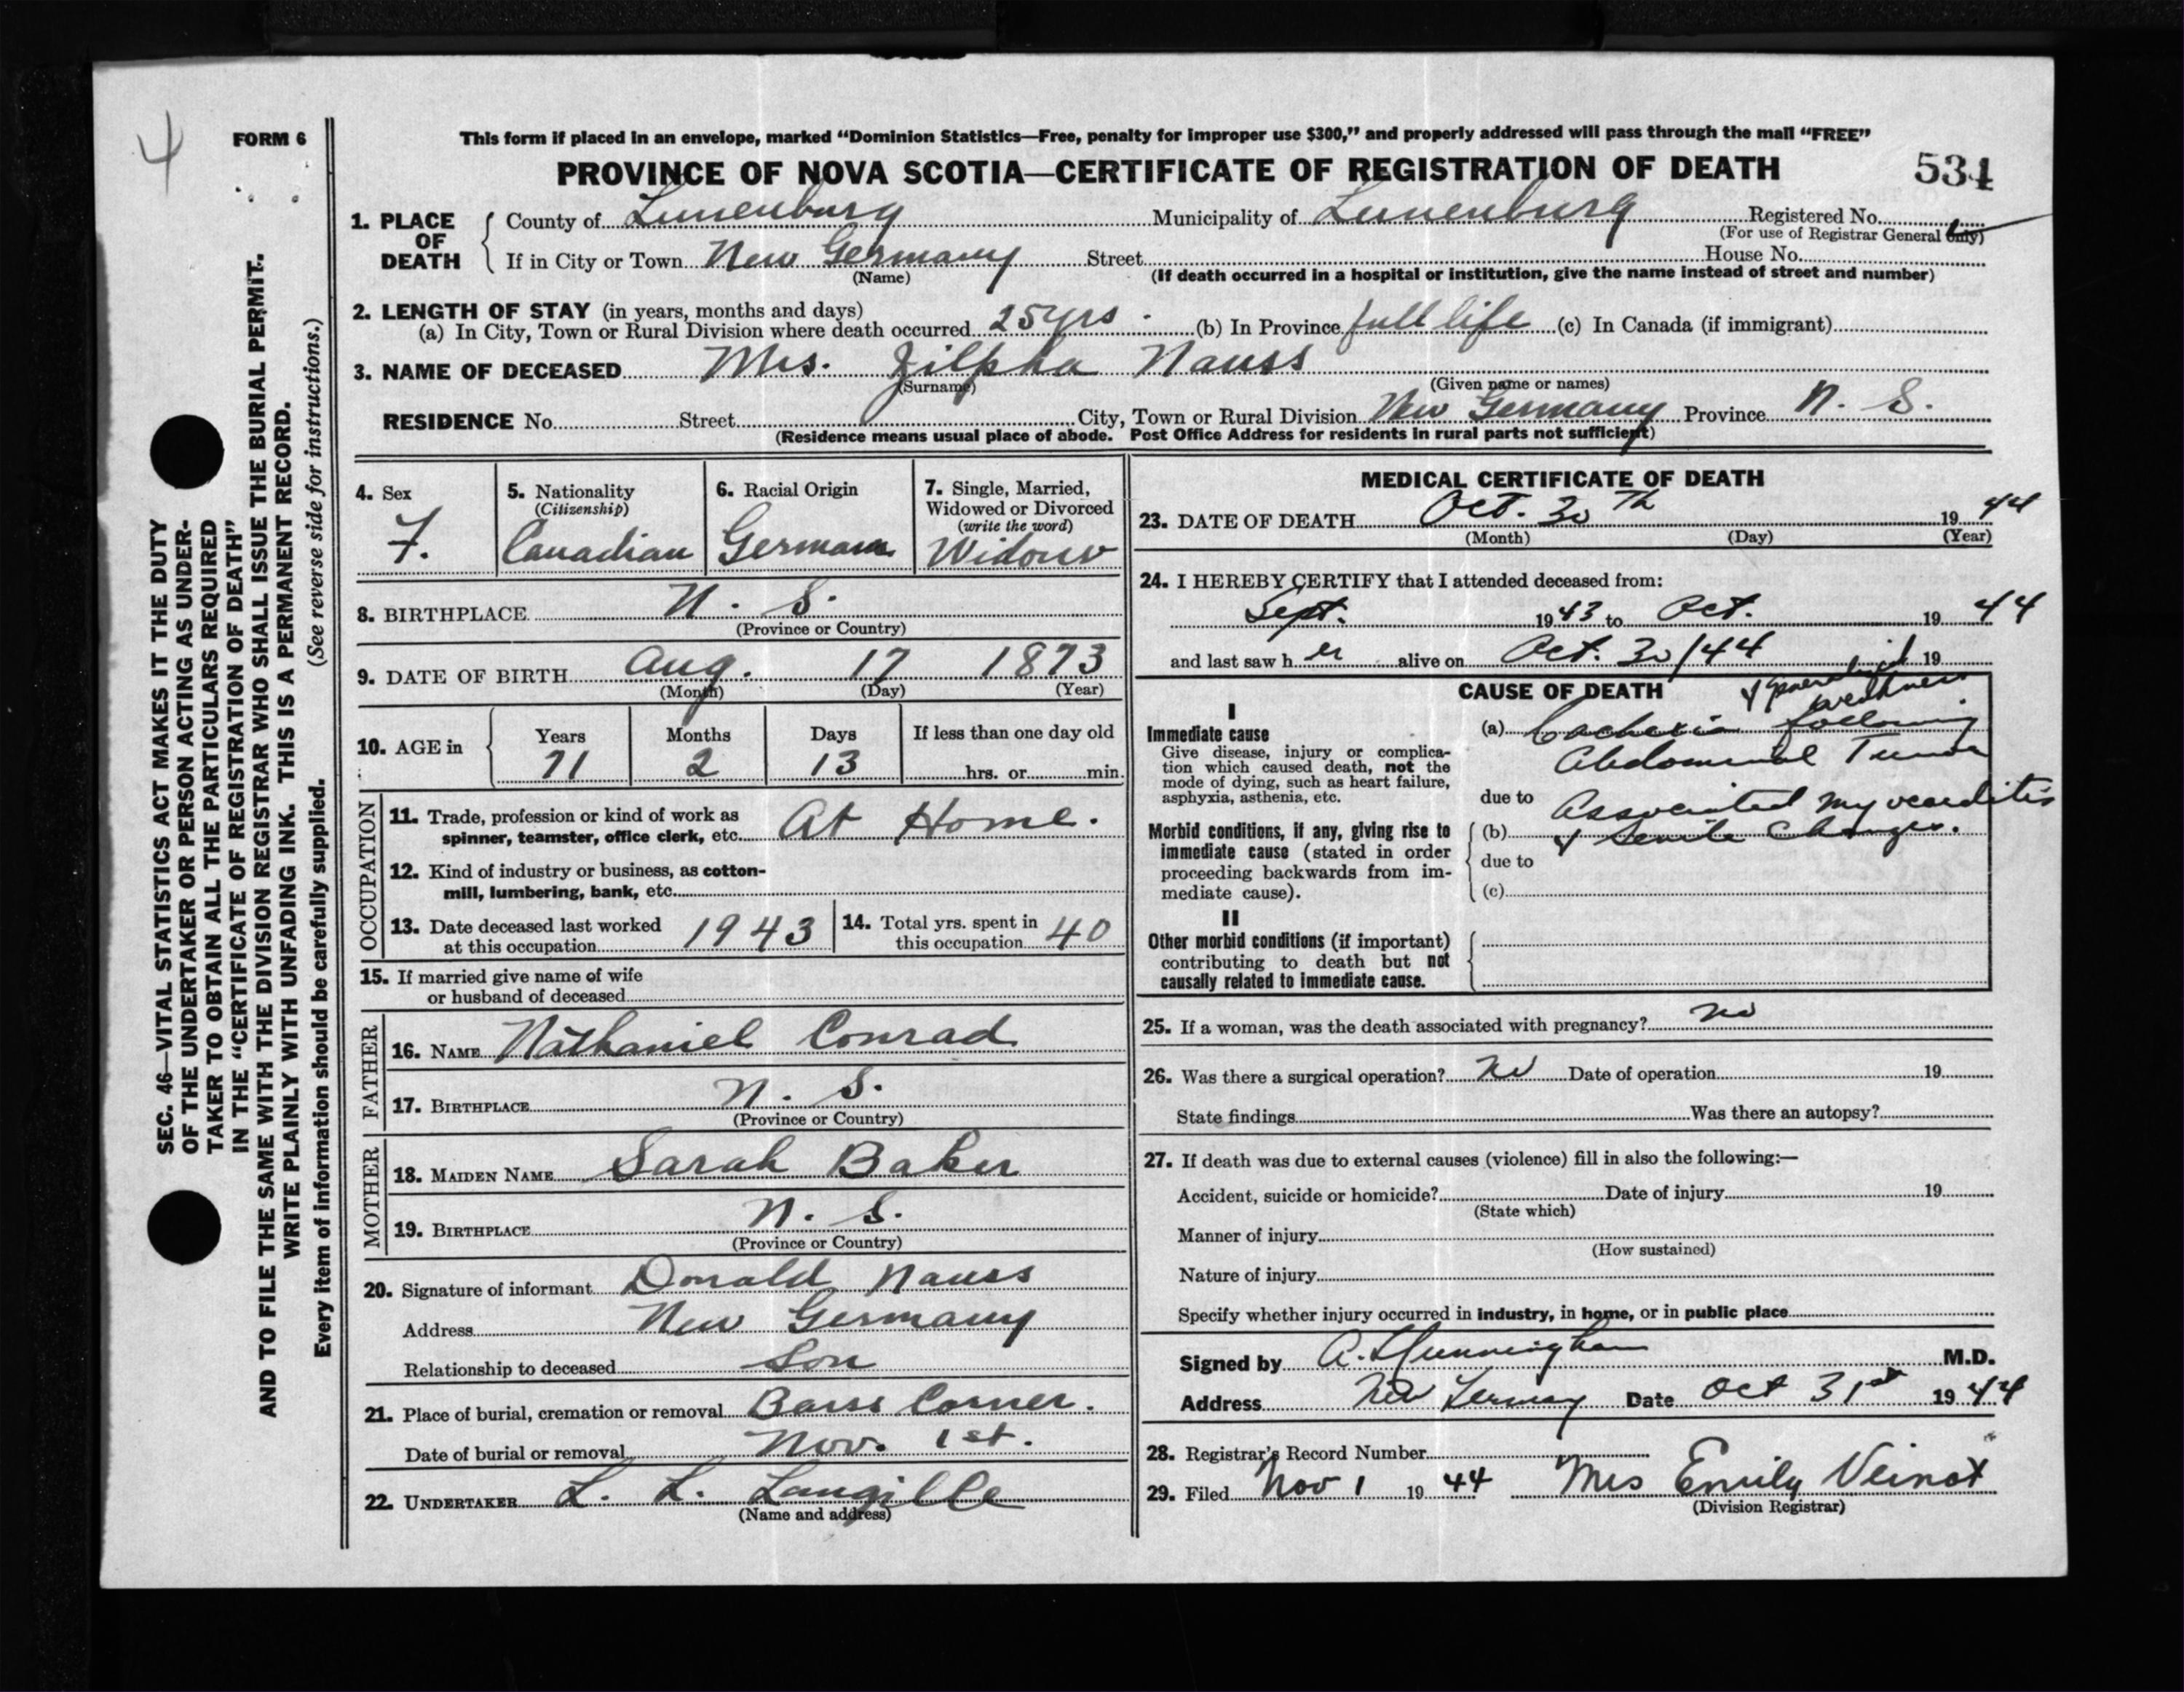 4
FORM 6
This form if placed in an envelope, marked “Dominion Statistics—Free, penalty for improper use $300,” and properly addressed will pass through the mail “FREE”
PROVINCE OF NOVA SCOTIA—CERTIFICATE OF REGISTRATION OF DEATH
534
1. PLACE OF DEATH
County of Lunenburg Municipality of Lunenburg Registered No.
(For use of Registrar General only)
If in City or Town New Germany Street House No.
(Name) (If death occurred in a hospital or institution, give the name instead of street and number)
2. LENGTH OF STAY (in years, months and days)
(a) In City, Town or Rural Division where death occurred 25 yrs. (b) In Province full life (c) In Canada (if immigrant)
3. NAME OF DECEASED Mrs. Zilpha Nauss
(Surname) (Given name or names)
RESIDENCE No. Street City, Town or Rural Division New Germany Province N. S.
(Residence means usual place of abode. Post Office Address for residents in rural parts not sufficient)
4. Sex
F.
5. Nationality
(Citizenship)
Canadian
6. Racial Origin
German
7. Single, Married,
Widowed or Divorced
(write the word)
Widow
8. BIRTHPLACE N. S.
(Province or Country)
9. DATE OF BIRTH Aug. 17 1873
(Month) (Day) (Year)
10. AGE in
Years Months Days If less than one day old
71 2 13 hrs. or min.
OCCUPATION
11. Trade, profession or kind of work as
spinner, teamster, office clerk, etc. At Home.
12. Kind of industry or business, as cotton-
mill, lumbering, bank, etc.
13. Date deceased last worked
at this occupation 1943
14. Total yrs. spent in
this occupation 40
15. If married give name of wife
or husband of deceased
FATHER
16. NAME Nathaniel Conrad
17. BIRTHPLACE N. S.
(Province or Country)
MOTHER
18. MAIDEN NAME Sarah Baker
19. BIRTHPLACE N. S.
(Province or Country)
20. Signature of informant Donald Nauss
Address New Germany
Relationship to deceased Son
21. Place of burial, cremation or removal Barss Corner.
Date of burial or removal Nov. 1st.
22. UNDERTAKER L. L. Langille
(Name and address)
MEDICAL CERTIFICATE OF DEATH
23. DATE OF DEATH Oct. 30th 1944
(Month) (Day) (Year)
24. I HEREBY CERTIFY that I attended deceased from:
Sept. 1943 to Oct. 1944
and last saw her alive on Oct. 30/44 19
CAUSE OF DEATH
I
Immediate cause
Give disease, injury or complica-
tion which caused death, not the
mode of dying, such as heart failure,
asphyxia, asthenia, etc.
& generalized
weakness
(a) Cachexia following
Abdominal Tumor
due to Associated myocarditis
Morbid conditions, if any, giving rise to
immediate cause (stated in order
proceeding backwards from im-
mediate cause).
(b) & Senile Changes.
due to
(c)
II
Other morbid conditions (if important)
contributing to death but not
causally related to immediate cause.
25. If a woman, was the death associated with pregnancy? no
26. Was there a surgical operation? No Date of operation 19
State findings Was there an autopsy?
27. If death was due to external causes (violence) fill in also the following:—
Accident, suicide or homicide? Date of injury 19
(State which)
Manner of injury
(How sustained)
Nature of injury
Specify whether injury occurred in industry, in home, or in public place
Signed by M.D.
Address New Germany Date Oct 31st 1944
28. Registrar's Record Number
29. Filed Nov 1 1944 Mrs Emily Veinot
(Division Registrar)
SEC. 46—VITAL STATISTICS ACT MAKES IT THE DUTY
OF THE UNDERTAKER OR PERSON ACTING AS UNDER-
TAKER TO OBTAIN ALL THE PARTICULARS REQUIRED
IN THE “CERTIFICATE OF REGISTRATION OF DEATH”
AND TO FILE THE SAME WITH THE DIVISION REGISTRAR WHO SHALL ISSUE THE BURIAL PERMIT.
WRITE PLAINLY WITH UNFADING INK. THIS IS A PERMANENT RECORD.
Every item of information should be carefully supplied. (See reverse side for instructions.)